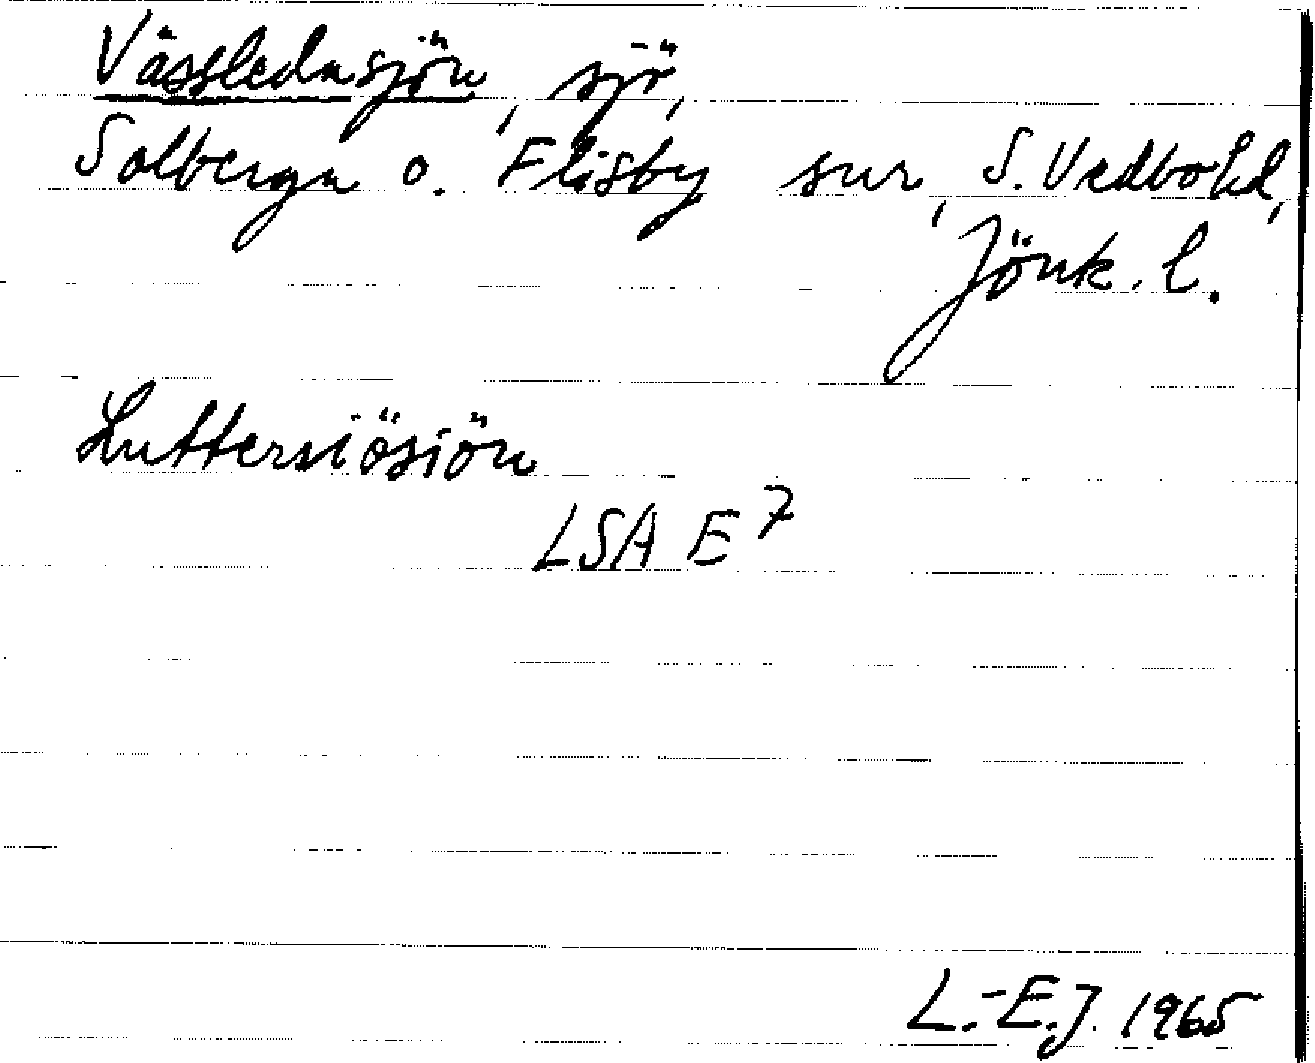 Vässledasjön, sjö,
Solberga o. Flisby sur, S. Vedbo hd,
Jönk. l.
Luttersiösiön
LSA E 7
L.-E.J. 1965